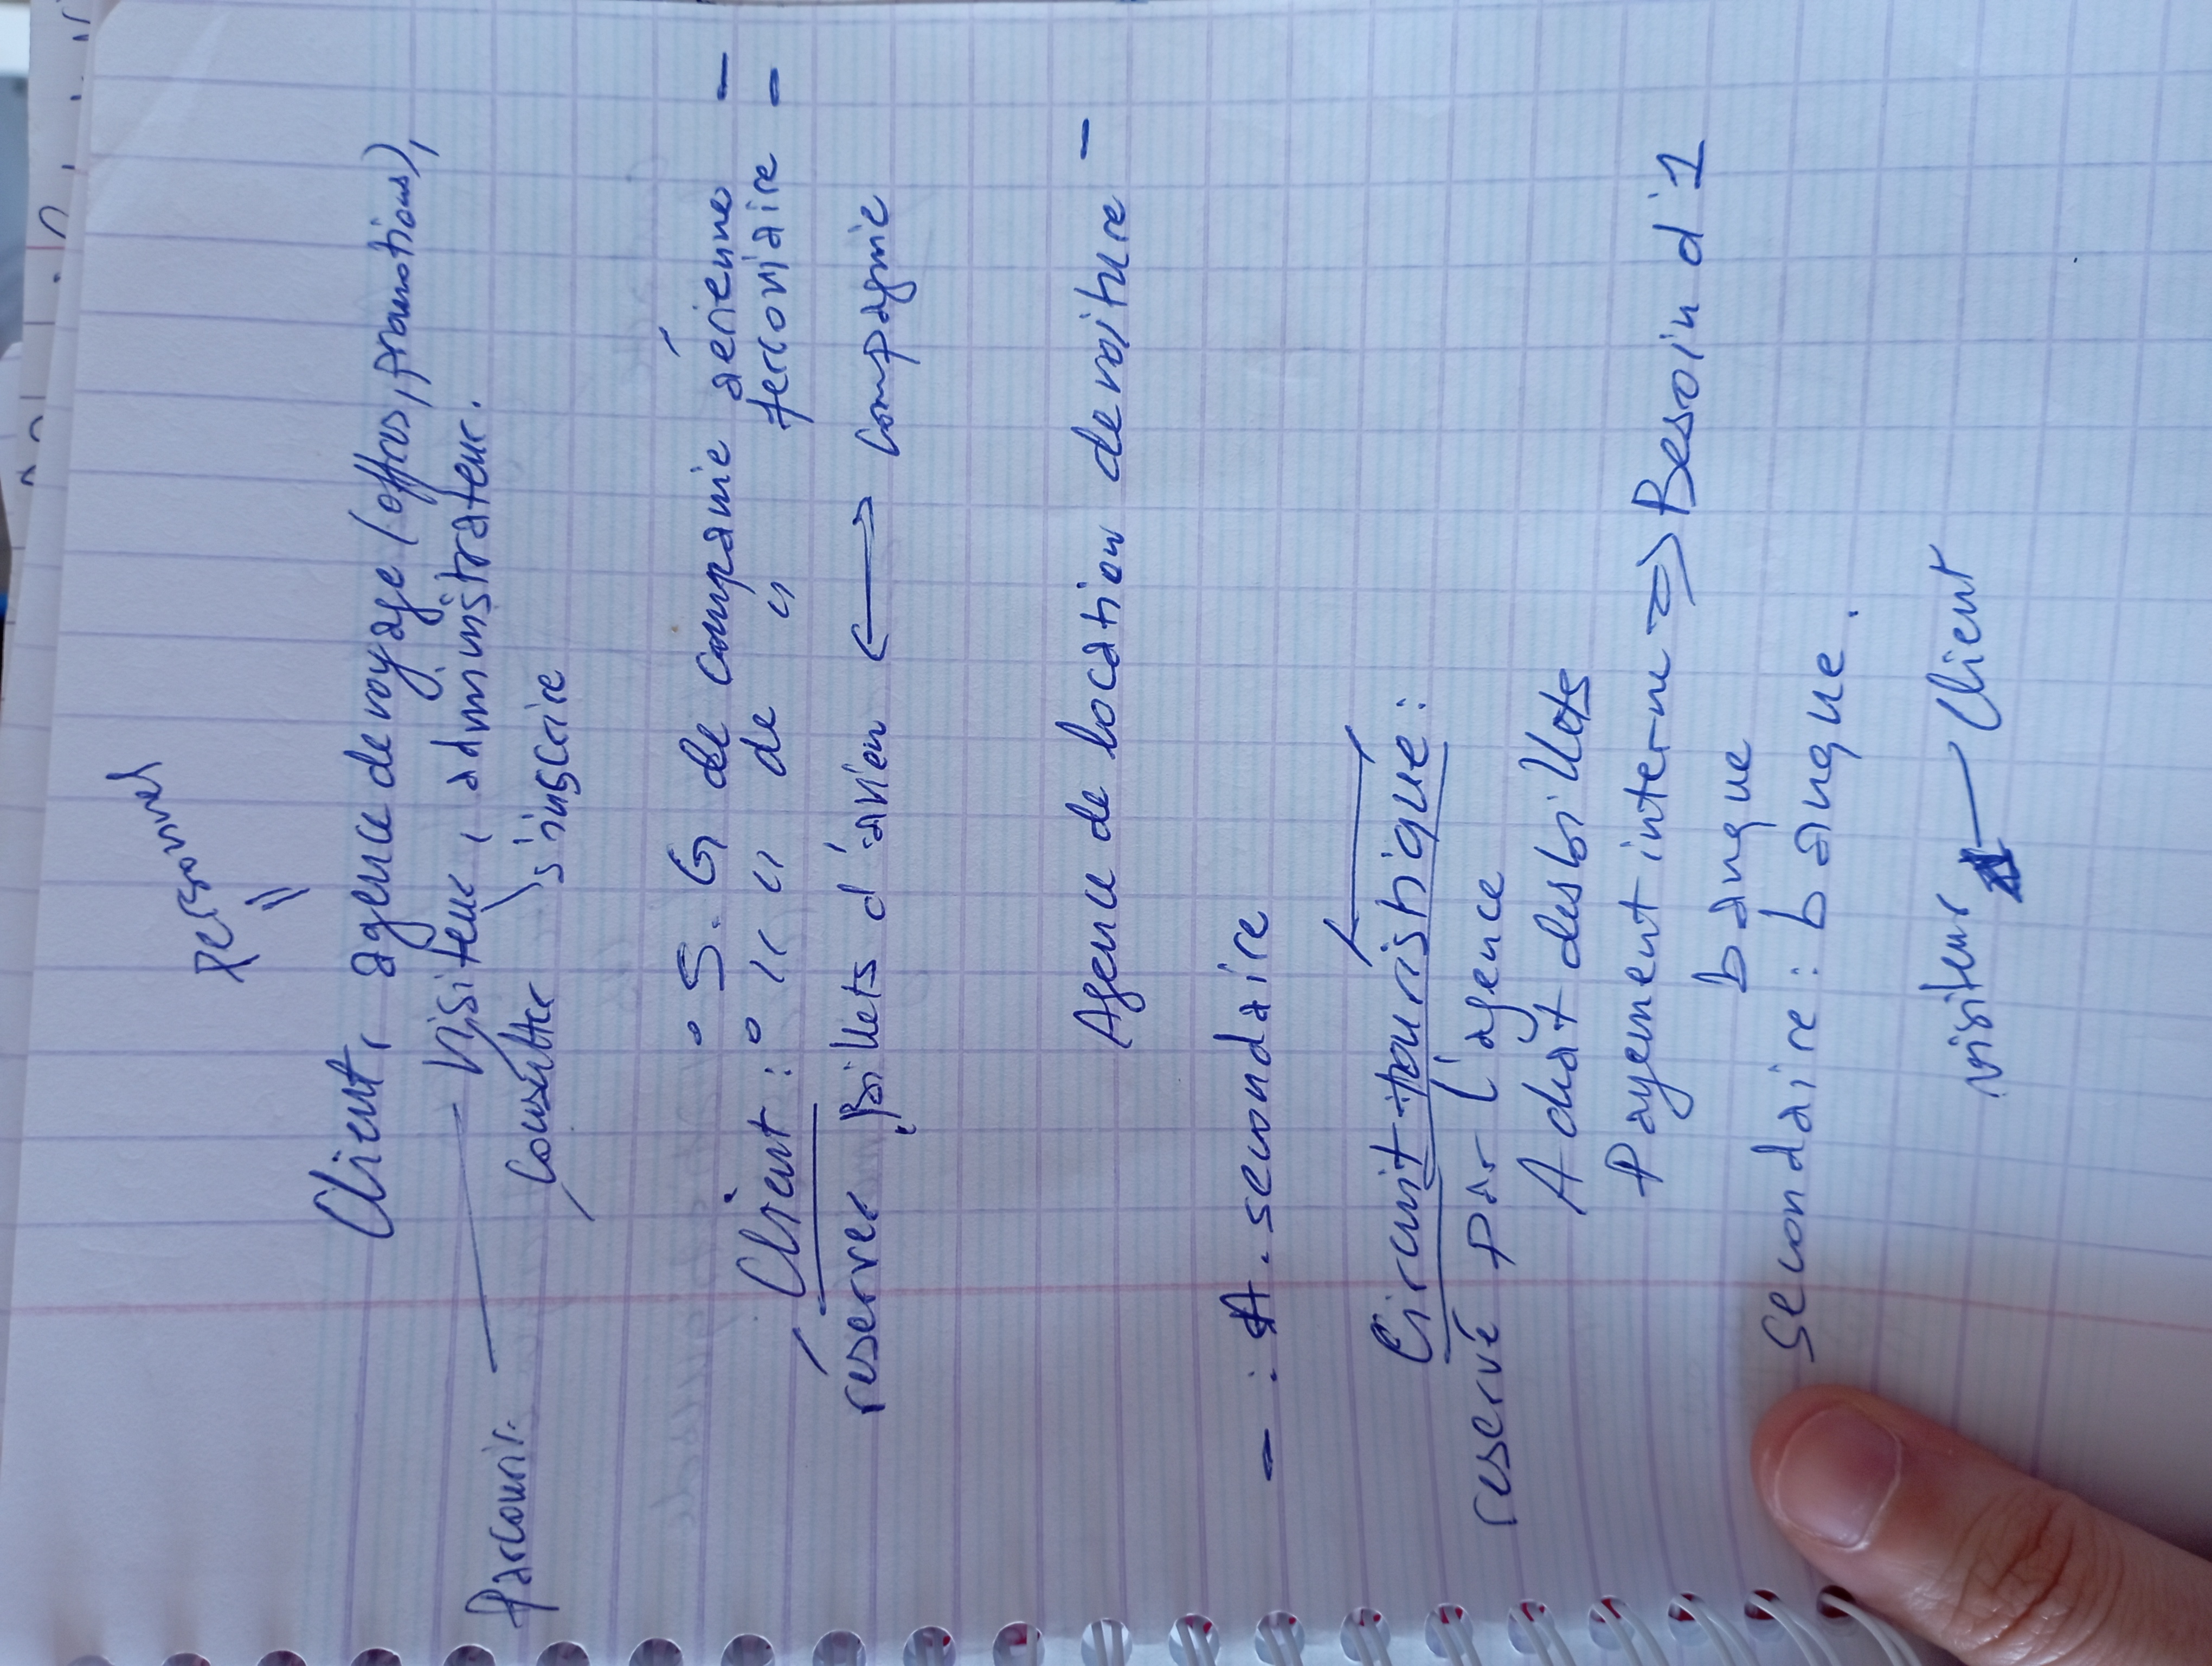 Personnel
Client, agence de voyage (offres, promotions),
Visiteur, administrateur.
Parcourir
Consulter s'inscrire
S. G de companie aérienne -
Client : " " de " ferroviaire -
réserver Billets d'avion <-> Compagnie
Agence de location de voiture -
- : A. secondaire
Circuit touristique :
reservé par l'agence
Achat des billets
Payement interne => Besoin d'1
banque
secondaire : banque.
visiteur Client